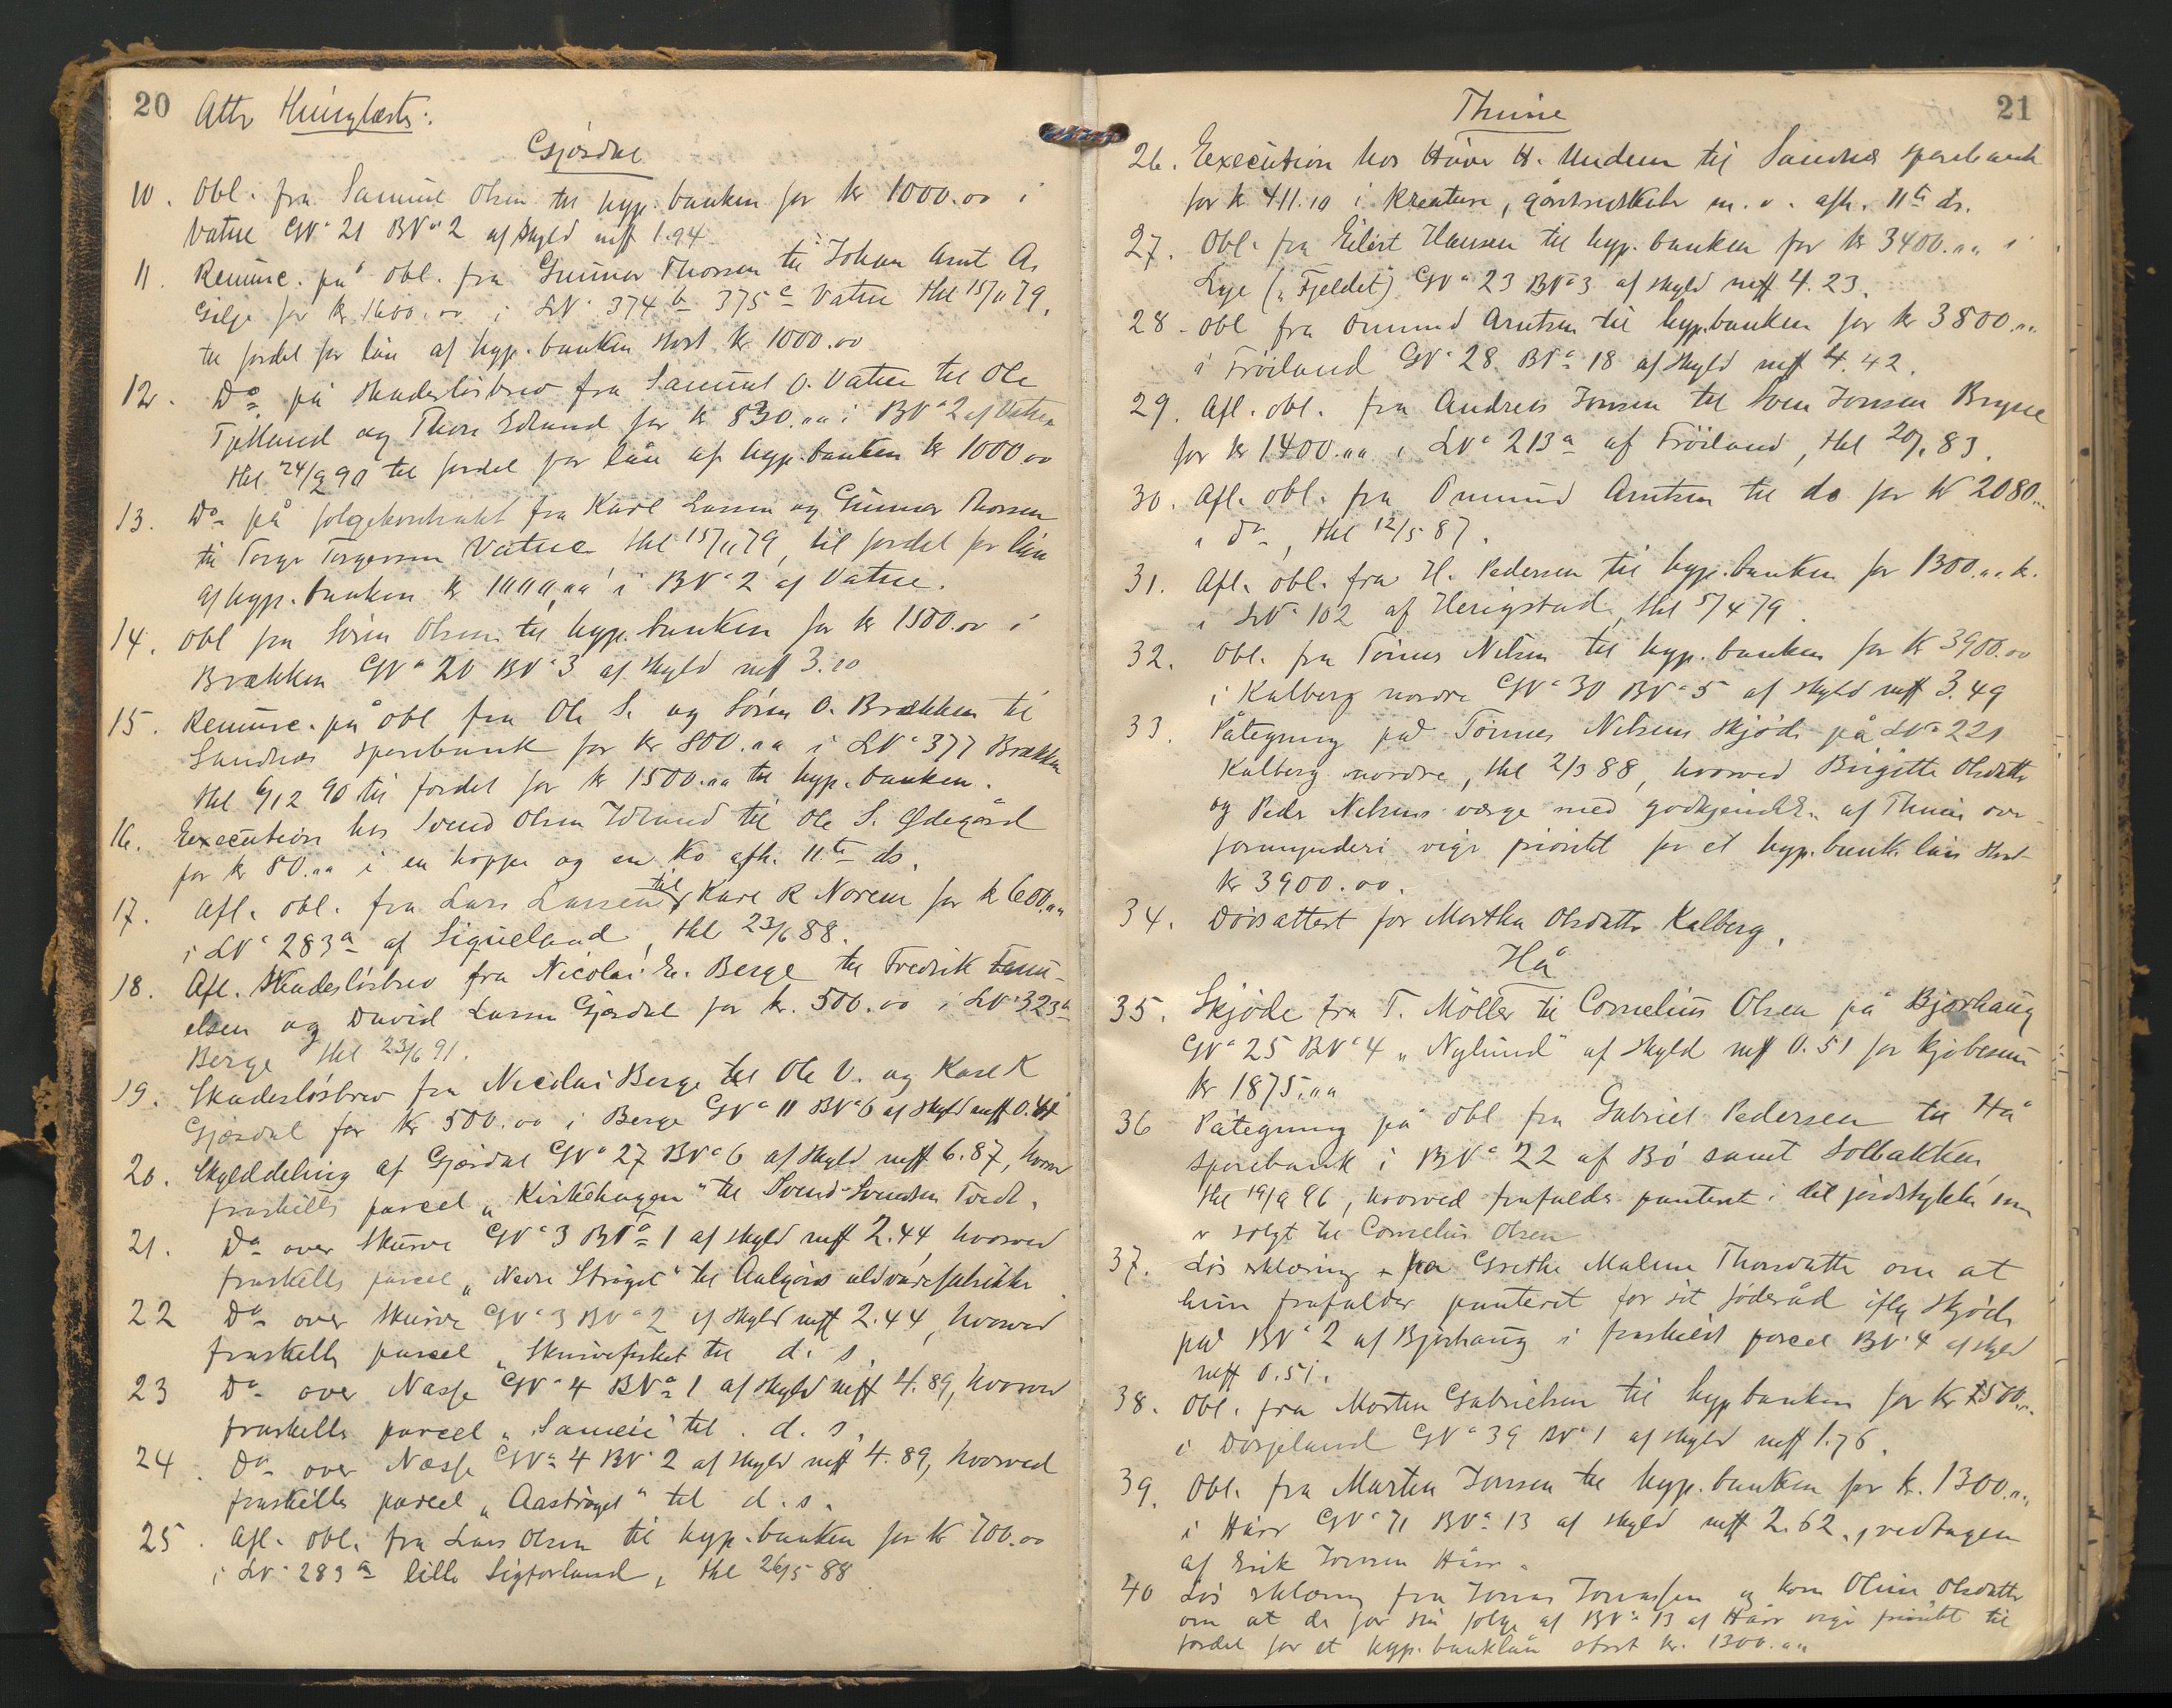 20
Gjesdal
10. Obl. fra Samuel Olsen til hyp. banken for kr 1000.00 i
Vatne GNo 21 BNo 2 af skyld mk 1.94
11. på obl. fra Gunnar Thorsen til Johan Arnt A.
Gilje for kr 1600.00 i LNo 374 b 375 c Vatne thl 15/11 79,
til fordel for lån af hyp. banken stort kr 1000.00
12. Do på skadesløsbrev fra Samuel O. Vatne til Ole
Fjelland og Thore Edland for kr 830.00 i BNo 2 af Vatne
thl 24/9 90 til fordel for lån af hyp. banken kr 1000.00
13. Do på folgekontrakt fra Karl Larsen og Gunnar Thorsen
til Torger Torgersen Vatne thl 15/11 79, til fordel for lån
af hyp. banken kr 1000,00 i BNo 2 af Vatne.
14. Obl fra Sören Olsen til hyp. banken for kr 1500.00 i
Brækken GNo 20 BNo 3 af skyld mk 3.10
15. på obl fra Ole S. og Sören O. Brækken til
Sandnes sparebank for kr 800.00 i LNo 377 Brækken
thl 6/12 90 til fordel for kr 1500.00 til hyp. banken.
16. Execution hos Svend Olsen til Ole S. Ødegård
for kr 80.00 i en hoppe og en ko afh. 11te ds.
17. Afl. obl. fra Lars Larsen til Karl K Norem for kr 600.00
i LNo 283a af, thl 23/6 88.
18. Afl. Skadesløsbrev fra Nicolai E. Berge til Fredrik
elsen og David Larsen Gjesdal for kr. 500.00 i LNo 323a
Berge thl 23/6 91.
19. Skadesløsbrev fra Nicolai Berge til Ole V. og Karl K
Gjesdal for kr 500.00 i Berge GNo 11 BNo 6 af skyld mk
20. Skylddeling af Gjesdal GNo 27 BNo 6 af skyld mk 6.87, hvorved
fraskilles parcel „Kirkehagen" til Svend Svendsen Tvedt.
21. Do over Skurve GNo 3 BNo 1 af skyld mk 2.44, hvorved
fraskilles parcel „Nedre Strøget" til Aalgårds uldvarefabrikker
22 Do over Skurve GNo 3 BNo 2 af skyld mk 2.44, hvorved
fraskilles parcel „Skurvefisket til d. s.
23 Do over Næsse GNo 4 BNo 1 af skyld mk 4.89, hvorved
fraskilles parcel „Sameie" til d. s.
24. Do over Næsse GNo 4 BNo 2 af skyld mk 4.89, hvorved
fraskilles parcel „Aastrøget" til d. s.
25. Afl. obl. fra Lars Olsen til hyp. banken for kr 700.00
i LNo 283 a lille, thl 26/5 88
21
Thime
26. Execution hos Håver H. Undem til Sandnes sparebank
for kr 411.10 i kreature, gårdsredskaber m. v. afh. 11te ds.
27. Obl. fra Eilert Hansen til hyp. banken for kr 3400.00 i
Lye („Fjeldet") GNo 23 BNo 3 af skyld mk 4.23.
28. Obl fra Ommund Arntsen til hyp. banken for kr 3800.00
i Fröiland GNo 28 BNo 18 af skyld mk 4.42.
29. Afl. obl. fra Andreas Jonsen til Sven Jonsen Bryne
for kr 1400.00 i LNo 213a af Fröiland, thl 83.
30. Afl. obl. fra Ommund Arntsen til do for kr 2080.00
i do, thl 12/5 87.
31. Afl. obl. fra H. Pedersen til hyp. banken for 1300.00 k.
i LNo 102 af Herigstad, thl 5/4 79.
32. Obl. fra Tönnes Nilsen til hyp. banken for kr 3900.00
i Kalberg nordre GNo 30 BNo 5 af skyld mk 3.49
33. Påtegning på Tönnes Nilsens skjöde på LNo 221
Kalberg nordre, thl 2/3 88, hvorved Birgitte Olsdatter
og Peder Nilsens værge med godkjendelse af Thime over-
formynderi viger prioritet for et hyp. bank lån stort
kr 3900.00.
34. Dödsattest for Martha Olsdatter Kalberg.
Hå
35. Skjöde fra T. Möller til Cornelius Olsen på Bjorhaug
GNo 25 BNo 4 „Nylund" af skyld mk 0.51 for kjöbesum
kr 1875.00
36 Påtegning på obl fra Gabriel Pedersen til Hå
sparebank i BNo 22 af Bö samt Solbakken
thl 19/9 96, hvorved frafaldes panteret i det jordstykke som
er solgt til Cornelius Olsen
37. Lös erklæring fra Grethe Malene Thorsdatter om at
hun frafalder panteret for sit föderåd iflg skjöde
på BNo 2 af Bjorhaug i fraskilt parcel BNo 4 af skyld
mk 0.51.
38. Obl. fra Morten Gabrielsen til hyp banken for kr
i Dysjeland GNo 39 BNo 1 af skyld mk 1.76.
39. Obl. fra Marten Jonsen til hyp. banken for kr. 1300.00
i Hårr GNo 71 BNo 13 af skyld mk 2.62, vedtagen
af Erik Hårr.
40 Lös erklæring fra Jonas Jonassen og kone Oline Olsdatter
om at de for sin folge af BNo 13 af Hårr viger prioritet til
fordel for et hyp. banklån stort kr. 1300.00